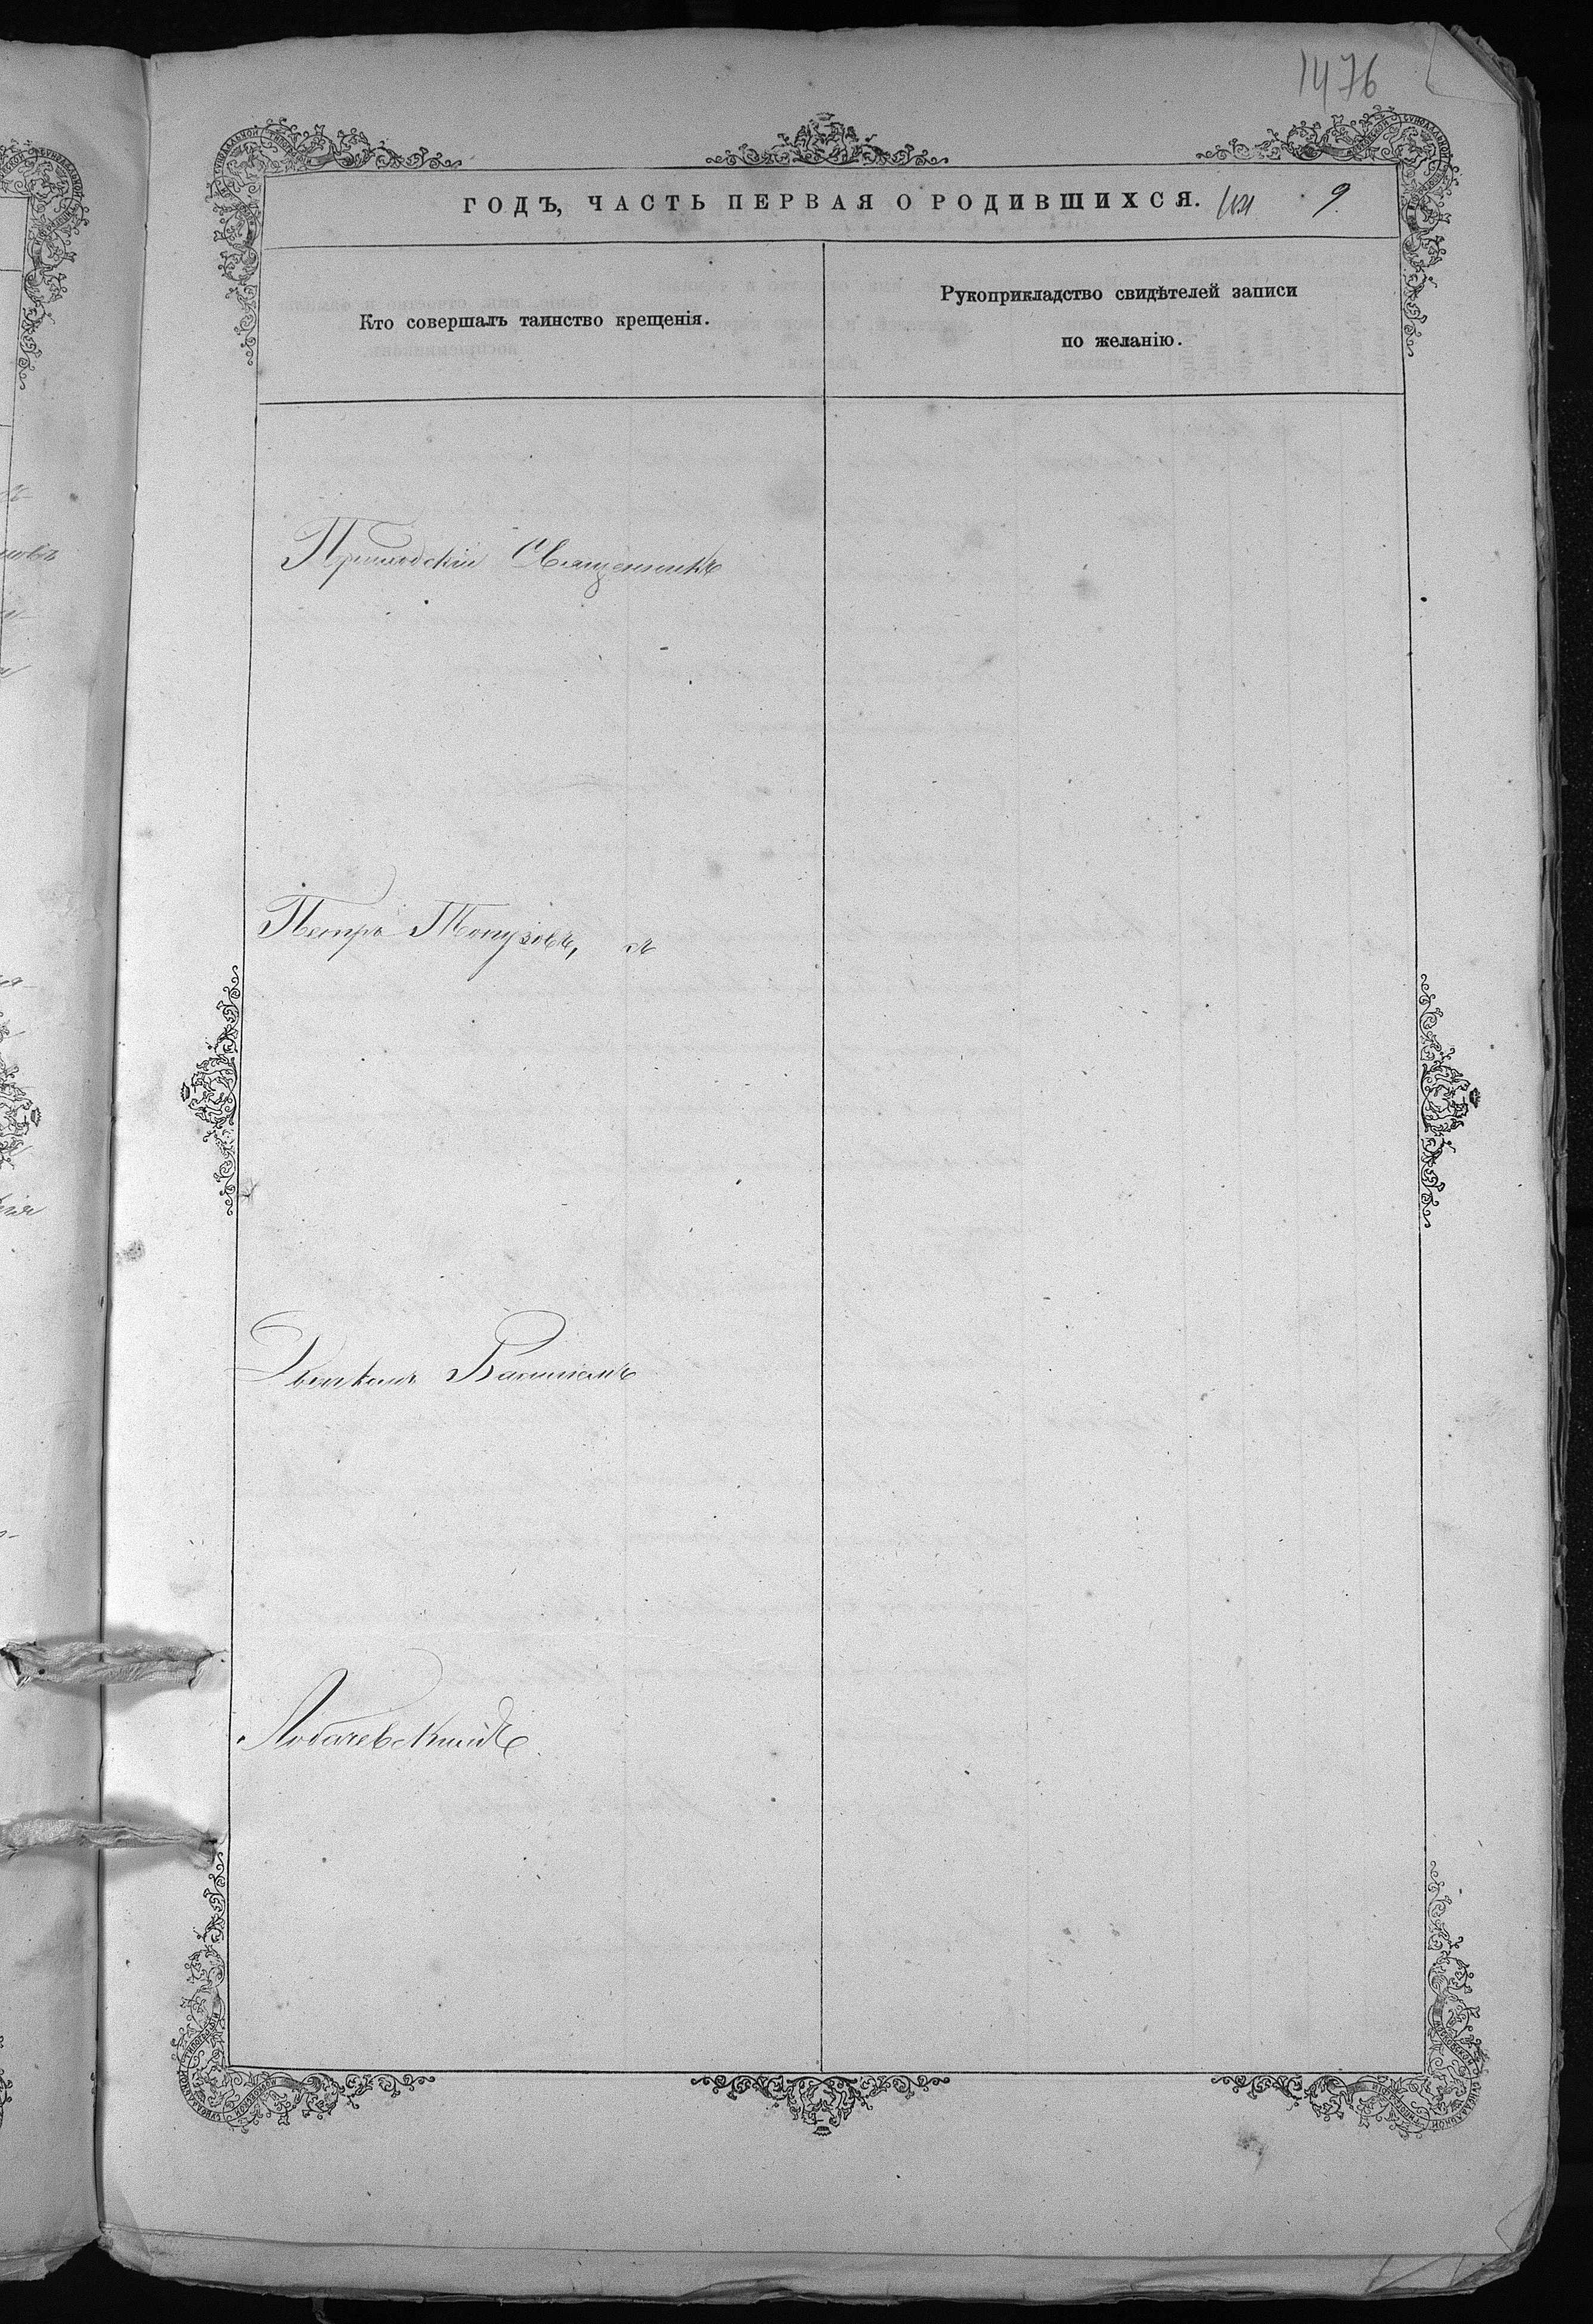 1476
ГОДЪ, ЧАСТЬ ПЕРВАЯ О РОДИВШИХСЯ. 9.
Кто совершалъ таинство крещенія.
Рукоприкладство свидѣтелей записи
по желанію.
Приходскій Священникъ
Петръ Топузовъ, съ
Дьякомъ Василіемъ
Лобачевскимъ